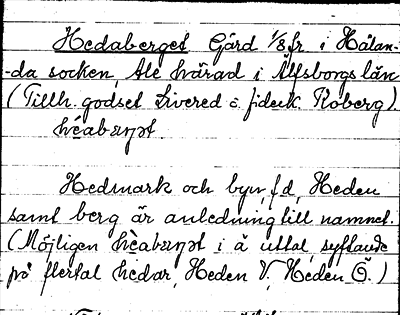 Hedaberget Gård 1/8 fr i Hälan-
-da socken, Ale härad i Älfsborgs län
(Tillh. godset Livered o. fideik. Koberg).
Hedmark och byn, f d, Heden
samt berg är anledning till namnet.
(Möjligen i ä uttal, syftande
på flertal hedar, Heden V, Heden Ö.)